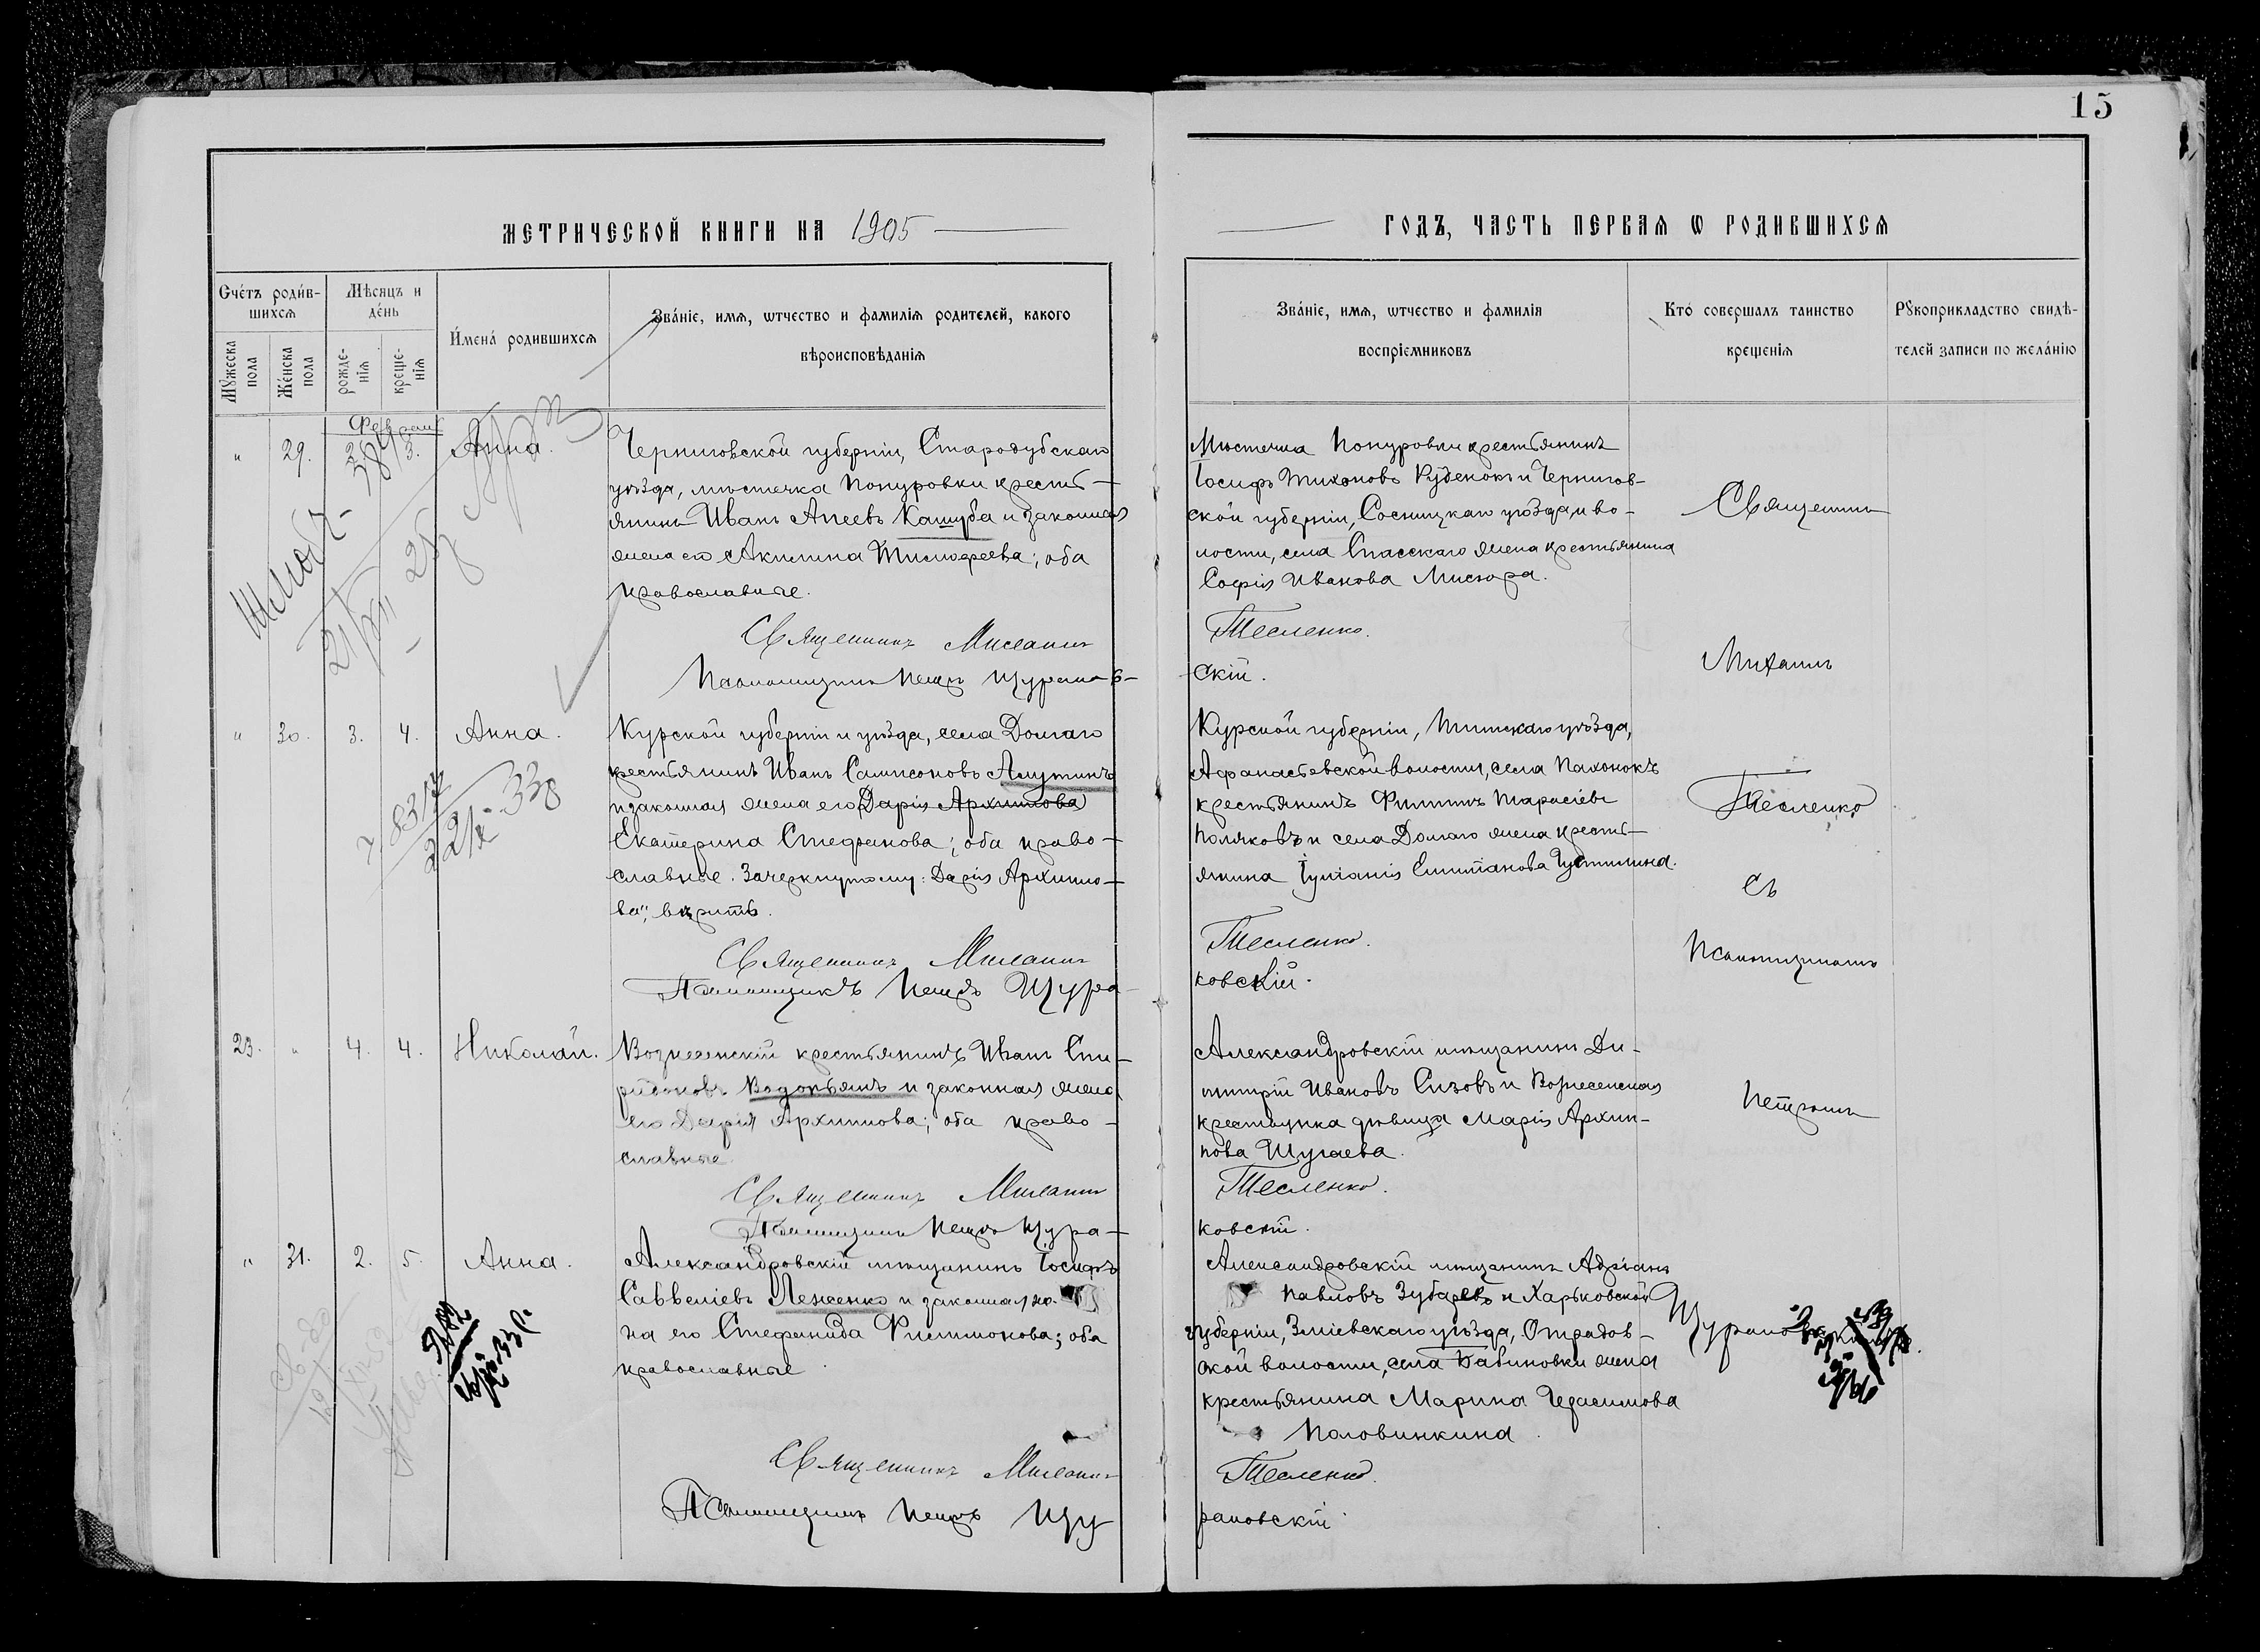 15
МЕТРИЧЕСКОЙ КНИГИ НА 1905
ГОДЪ, ЧАСТЬ ПЕРВАЯ Ѡ РОДИВШИХСЯ
Счетъ родив-
шихся
Мужеска пола
Женска пола
Мѣсяцъ и
день
рожде-
нія
креще-
нія
Имена родившихся
Званіе, имя, ѡтчество и фамилія родителей, какого
вѣроисповѣданія
Званіе, имя, ѡтчество и фамилія
воспріемниковъ
Кто совершалъ таинство
крещенія
Рукоприкладство свидѣ-
телей записи по желанію
Февраль
" 29. 3. Анна.
Черниговской губерніи, Стародубскаго
уѣзда, мѣстечка Понуровки кресть-
янинъ Иванъ Кашуба и законная
жена его Акилина Тимофеева; оба
православные.
Священникъ Михаилъ
Псаломщикъ Петръ Щуранов-
Мѣстечка Понуровки крестьянинъ
Іосифъ Тихоновъ Руденокъ и Чернигов-
ской губерніи, Сосницкаго уѣзда, и во-
лости, села Спасскаго жена крестьянина
Софія Иванова Мисюра.
Тесленко.
скій.
" 30. 3. 4. Анна.
Курской губерніи и уѣзда, села Долгаго
крестьянинъ Иванъ Сампсоновъ Алутинъ
и законная жена его Дарія Архипова
Екатерина Стефанова; оба право-
славные. Зачеркнутому: Дарія Архипо-
ва", вѣрить.
Священникъ Михаилъ
Псаломщикъ Петръ Щура-
Курской губерніи, Тимскаго уѣзда,
Афанасьевской волости, села Пахонокъ
крестьянинъ Филиппъ Тарасіевъ
Поляковъ и села Долгаго жена кресть-
янина Іуліанія
Тесленко.
ковскій.
23. " 4. 4. Николай.
Вознесенскій крестьянинъ Иванъ Спи-
ридоновъ Водопьянъ и законная жена
его Дарія Архипова; оба право-
славные.
Священникъ Михаилъ
Псаломщикъ Петръ Щура-
Александровскій мѣщанинъ Ди-
митрій Ивановъ Сизовъ и Вознесенская
крестьянка дѣвица Марія Архип-
пова Шугаева.
Тесленко.
ковскій.
" 31. 2. 5. Анна.
Александровскій мѣщанинъ Іосифъ
Савveліевъ Леженко и законная же-
на его Стефанида Филимонова; оба
православные.
Священникъ Михаилъ
Псаломщикъ Петръ Щу-
Александровскій мѣщанинъ Адріанъ
Павловъ Зубаревъ и Харьковской
губерніи, Зміевскаго уѣзда, Отрадов-
ской волости, села Бабиновки жена
крестьянина Марина Герасимова
Половинкина.
Тесленко.
рановскій
Священникъ
Михаилъ
Тесленко
съ
Псаломщикомъ
Петромъ